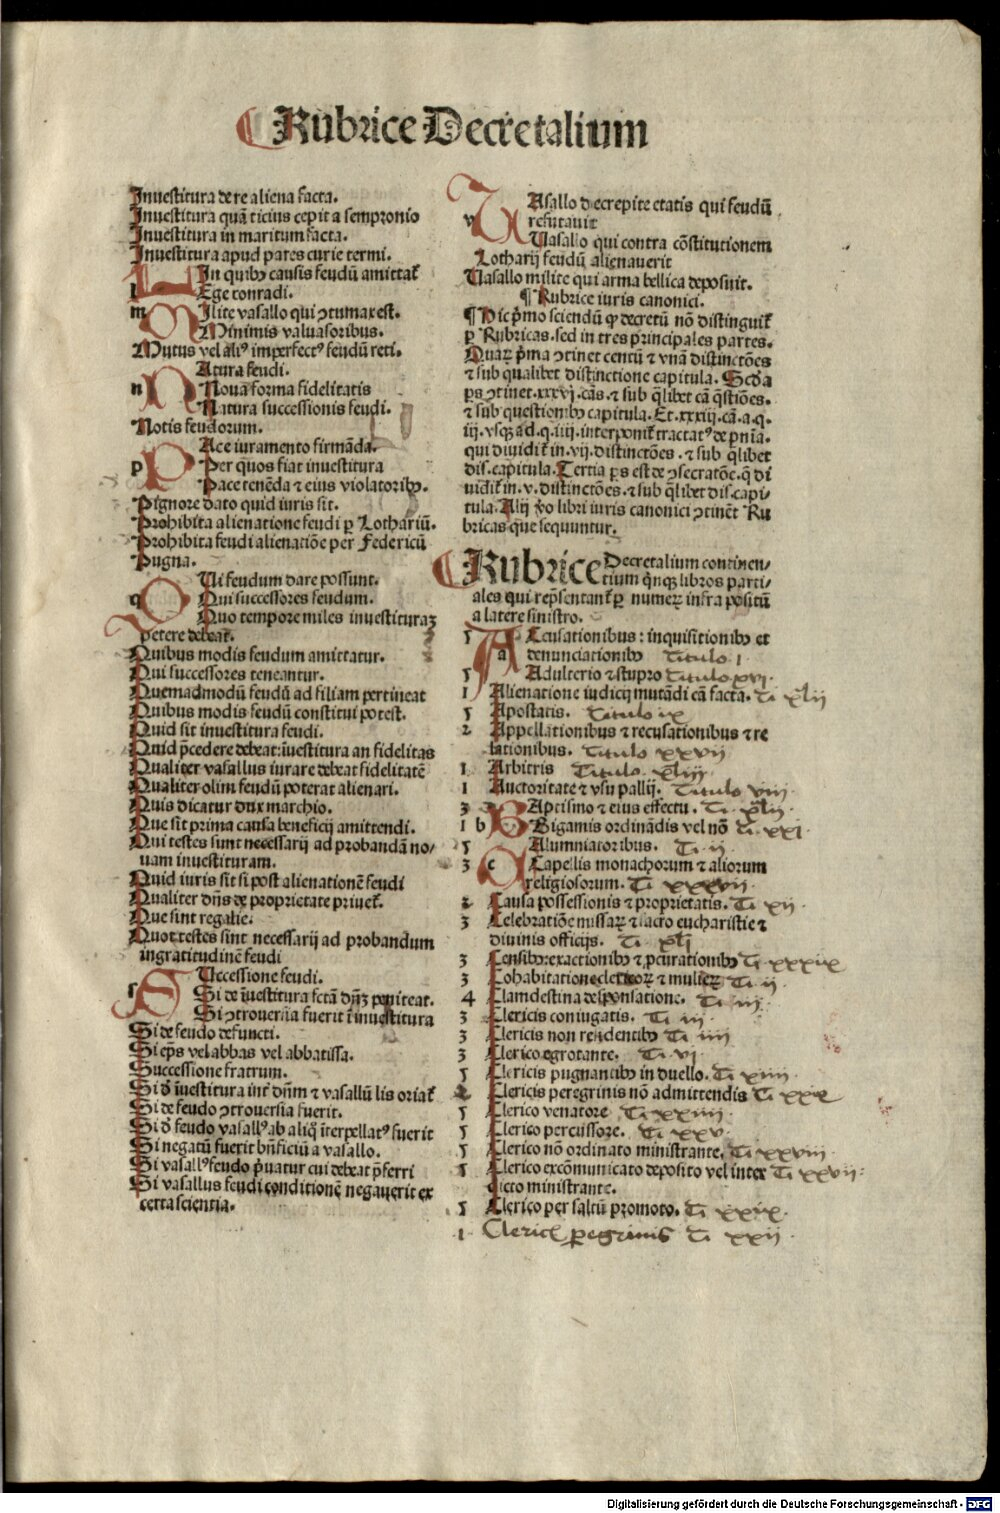 Rubrice Decretalium
Inuestitura de re aliena facta.
Inuestitura quā ticius cepit a sempronio
Inuestitura in maritum facta.
Inuestitura apud pares curie termi.
In quibꝰ causis feudū amittat̄
l Ege conradi.
m Ilite vasallo qui ꝯtumax est.
Minimis valuasoribus.
Mutus vel aliꝰ imperfectꝰ feudū reti.
Atura feudi.
n Noua forma fidelitatis
Natura successionis feudi.
Notis feudorum.
Ace iuramento firmāda.
p Per quos fiat inuestitura
Pace tenēda ⁊ eius violatoribꝰ.
Pignore dato quid iuris sit.
Prohibita alienatione feudi ꝑ Lothariū.
Prohibita feudi alienatiōe per Federicū
Pugna.
Ui feudum dare possunt.
q Qui successores feudum.
Quo tempore miles inuesturaꝫ
petere debeat̄.
Quibus modis feudum amittatur.
Qui successores teneantur.
Quemadmodū feudū ad filiam pertineat
Quibus modis feudū constitui potest.
Quid sit inuestitura feudi.
Quid p̄cedere debeat: īuestitura an fidelitas
Qualiter vasallus iurare debeat fidelitatē
Qualiter olim feudū poterat alienari.
Quis dicatur dux marchio.
Que sit prima causa beneficij amittendi.
Qui testes sunt necessarij ad probandā no/
uam inuestituram.
Quid iuris sit si post alienationē feudi
Qualiter dn̄s de proprietate priuet̄.
Que sint regalie.
Quot testes sint necessarij ad probandum
ingratitudinē feudi
Uccessione feudi.
s Si de īuestitura fctā dn̄ꝫ peniteat.
Si ꝯtrouersia fuerit ī inuestitura
Si de feudo defuncti.
Si ep̄s vel abbas vel abbatissa.
Successione fratrum.
Si d̄ īuestitura int̄ dn̄m ⁊ vasallū lis oriat̄
Si de feudo ꝯtrouersia fuerit.
Si d̄ feudo vasallꝰ ab aliq̄ īterpellatꝰ fuerit
Si negatū fuerit bn̄ficiū a vasallo.
Si vasallꝰ feudo p̄uatur cui debeat p̄ferri
Si vasallus feudi conditionē negauerit ex
certa scientia.
v Asallo decrepite etatis qui feudū
refutauit
Uasallo qui contra cōstitutionem
Lotharij feudū alienauerit
Uasallo milite qui arma bellica deposuit.
¶ Rubrice iuris canonici.
¶ Hic p̄mo sciendū ꝙ decretū nō distinguit̄
ꝑ Rubricas. sed in tres principales partes.
Quaꝝ p̄ma ꝯtinet centū ⁊ vnā distinctōes
⁊ sub qualibet distinctione capitula. Scd̄a
ps ꝯtinet .xxxvj. cās. ⁊ sub q̄libet cā q̄stiōes.
⁊ sub questionibꝰ capitula. Et .xxxiij. cā. a .q.
iij. vsqꝫ ad .q. iiij. interponit̄ tractatꝰ de pn̄ia.
qui diuidit̄ in .vij. distinctōes. ⁊ sub q̄libet
dis. capitula. Tertia ps est de ꝯsecratōe. q̄ di
uidit̄ in .v. distinctōes. ⁊ sub q̄libet dis. capi-
tula. Alij v̄o libri iuris canonici ꝯtinēt Ru
bricas que sequuntur.
Rubrice Decretalium continen-
tium qn̄qꝫ libros parti-
ales qui rep̄sentant̄ ꝑ numeꝝ infra positū
a latere sinistro.
5 Ccusationibus: inquisitionibꝰ et
a denunciationibꝰ Titulo j
5 Adulterio ⁊ stupro Titulo xvj.
1 Alienatione iudicij mutādi cā facta. Ti xlij
5 Apostatis. Titulo ix
2 Appellationibus ⁊ recusationibus ⁊ re
lationibus. Titulo xxvij
1 Arbitris Titulo xliij.
1 Auctoritate ⁊ vsu pallij. Titulo viij.
3 Aptismo ⁊ eius effectu. Ti xlij.
1 b Bigamis ordinādis vel nō Ti xxj.
5 Alumniatoribus. Ti ij
3 c Capellis monachorum ⁊ aliorum
religiosorum. Ti xxxvij.
2 Causa possessionis ⁊ proprietatis. Ti xij.
3 Celebratiōe missaꝝ ⁊ sacro eucharistie ⁊
diuinis officijs. Ti xlj
3 Censibꝰ exactionibꝰ ⁊ ꝓcurationibꝰ Ti xxxix
3 Cohabitatione clericoꝝ ⁊ mulieꝝ Ti ij
4 Clamdestina desponsatione. Ti iij.
3 Clericis coniugatis. Ti iij
3 Clericis non residentibꝰ Ti iiij
3 Clerico egrotante. Ti vj
5 Clericis pugnantibꝰ in duello. Ti xiiij
Clericis peregrinis nō admittendis Ti
5 Clerico venatore Ti xxiiij.
5 Clerico percussore. Ti xxv.
5 Clerico nō ordinato ministrante. Ti xxviij
5 Clerico excōmunicato deposito vel inter Ti xxvij.
dicto ministrante.
5 Clerico per saltū promoto. Ti xxix.
1 Clericis peregrinis Ti xxij
Digitalisierung gefördert durch die Deutsche Forschungsgemeinschaft - DFG